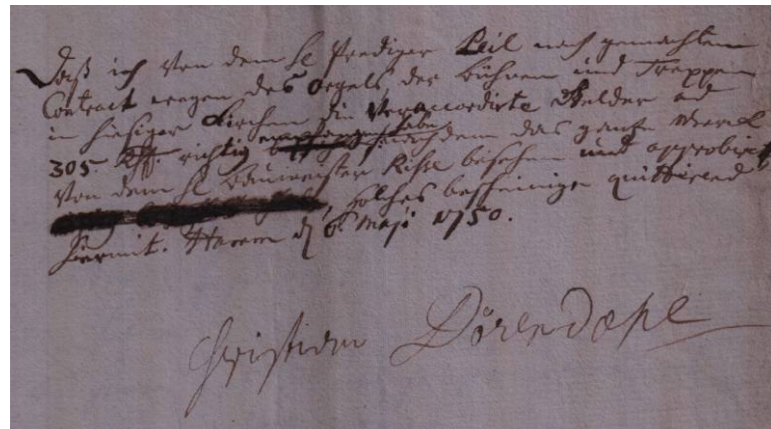 Daß ich von dem H Prediger Keil nach gemachtem
Contract wegen des Orgels, der Bühren und Treppen
in hiesiger Kirchen die veraccordirte Gelder ad
305 rthl. richtig empfangen habe, nachdem das gantze Werck
von dem H Baumeister besehen und approbiret
solches bescheinige quittirend
hiermit. Harem d 6 Maji 1750.
Christian Dörendahl